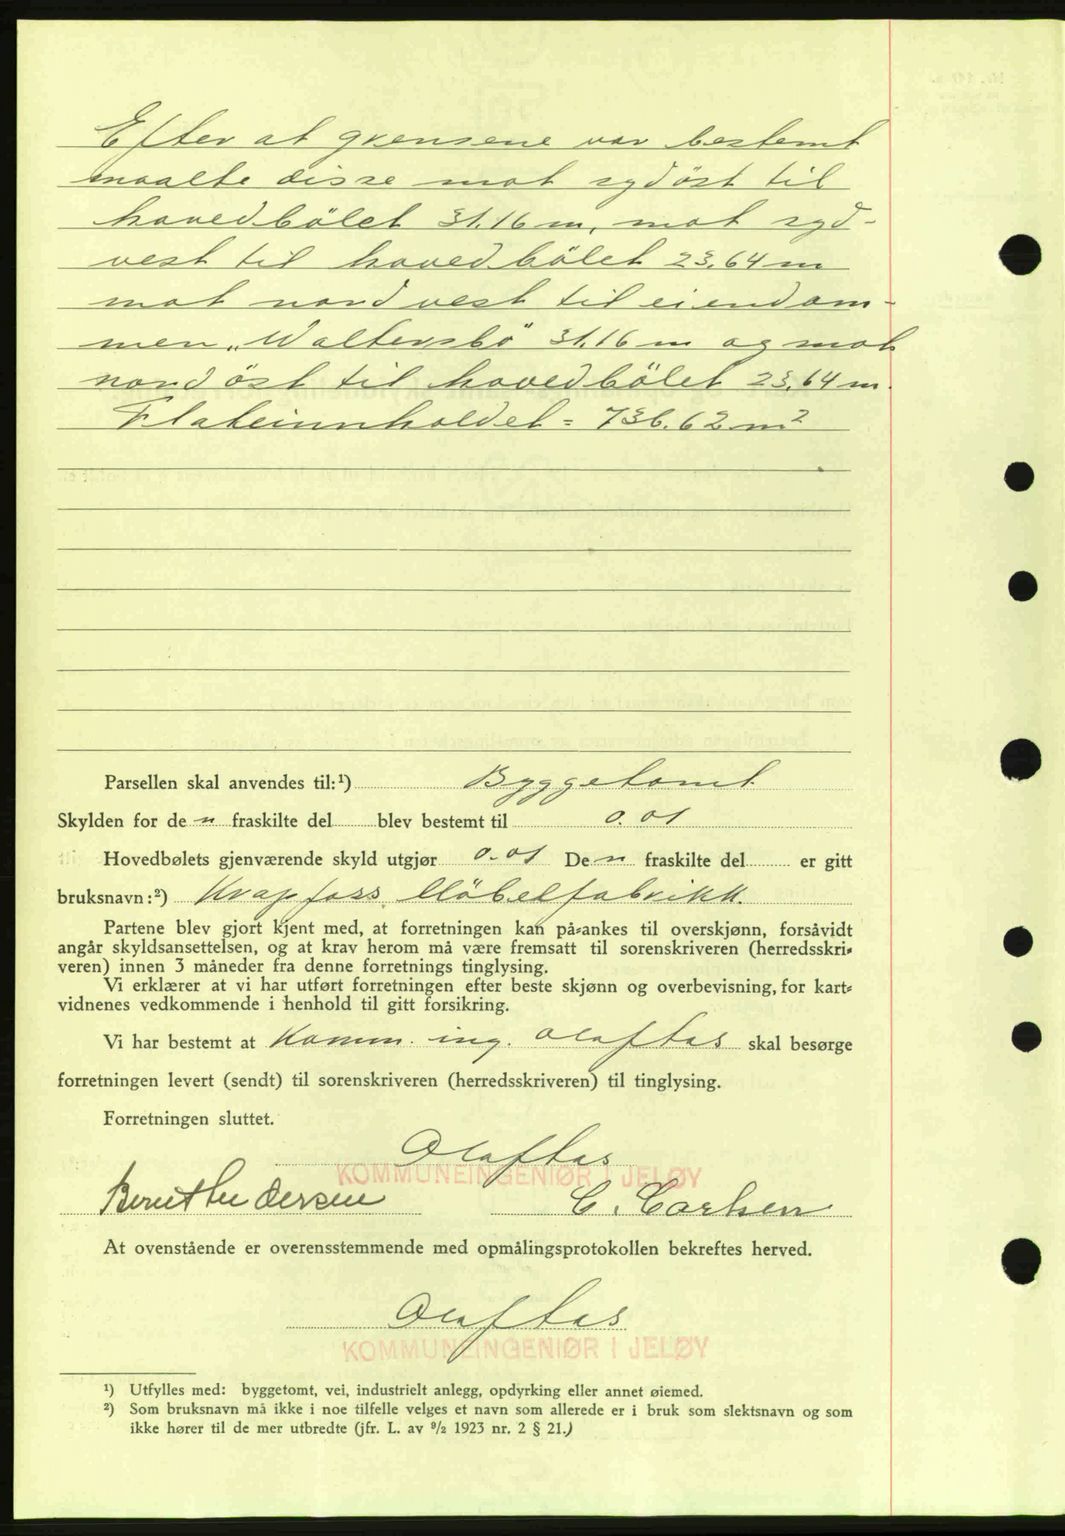 Efter at grensene var bestemt
maalte disse mot sydöst til
hovedbölet 31.16 m, mot syd-
vest til hovedbölet 23,64 m
mot nordvest til eiendom-
men "Waltersbö" 31.16 m og mot
nordöst til hovedbölet 23,64 m.
Flateinnholdet = 736.62 m²
Parsellen skal anvendes til:¹) Byggetomt
Skylden for de n fraskilte del blev bestemt til 0.01
Hovedbølets gjenværende skyld utgjør 0.01 De n fraskilte del er gitt
bruksnavn:²) Krapfoss Möbelfabrikk.
Partene blev gjort kjent med, at forretningen kan på-ankes til overskjønn, forsåvidt
angår skyldsansettelsen, og at krav herom må være fremsatt til sorenskriveren (herredsskri-
veren) innen 3 måneder fra denne forretnings tinglysing.
Vi erklærer at vi har utført forretningen efter beste skjønn og overbevisning, for kart-
vidnenes vedkommende i henhold til gitt forsikring.
Vi har bestemt at Komm. ing. Olaftas skal besørge
forretningen levert (sendt) til sorenskriveren (herredsskriveren) til tinglysing.
Forretningen sluttet.
Olaftas
KOMMUNEINGENIØR I JELØY
Bernt Andersen C. Carlsen
At ovenstående er overensstemmende med opmålingsprotokollen bekreftes herved.
Olaftas
KOMMUNEINGENIØR I JELØY
¹) Utfylles med: byggetomt, vei, industrielt anlegg, opdyrking eller annet øiemed.
²) Som bruksnavn må ikke i noe tilfelle velges et navn som allerede er i bruk som slektsnavn og som
ikke hører til de mer utbredte (jfr. L. av 9/2 1923 nr. 2 § 21.)